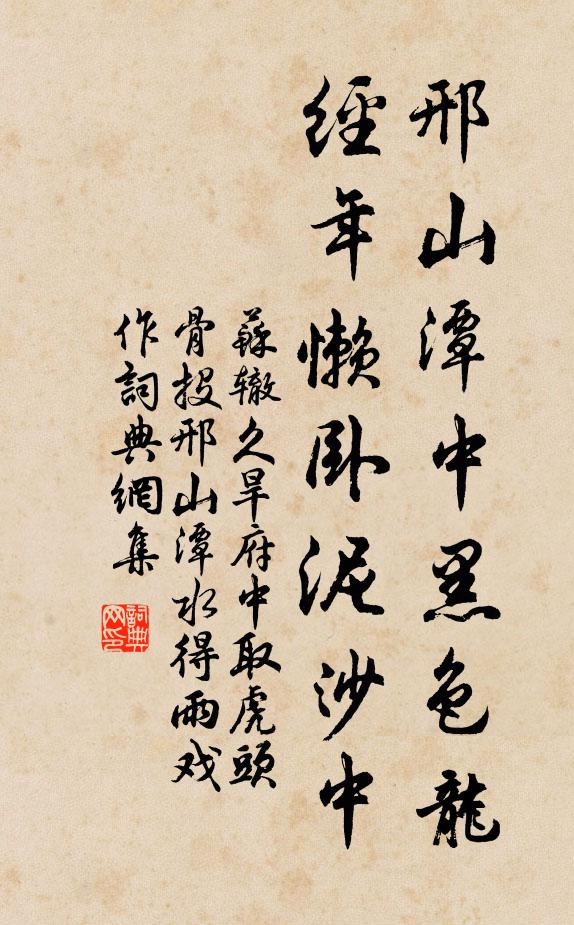 邢山潭中黑色龍
經年懶卧泥沙中
蘇辙久旱府中取虎頭
骨投邢山潭水得雨戏
作詞典網集
詞典网印